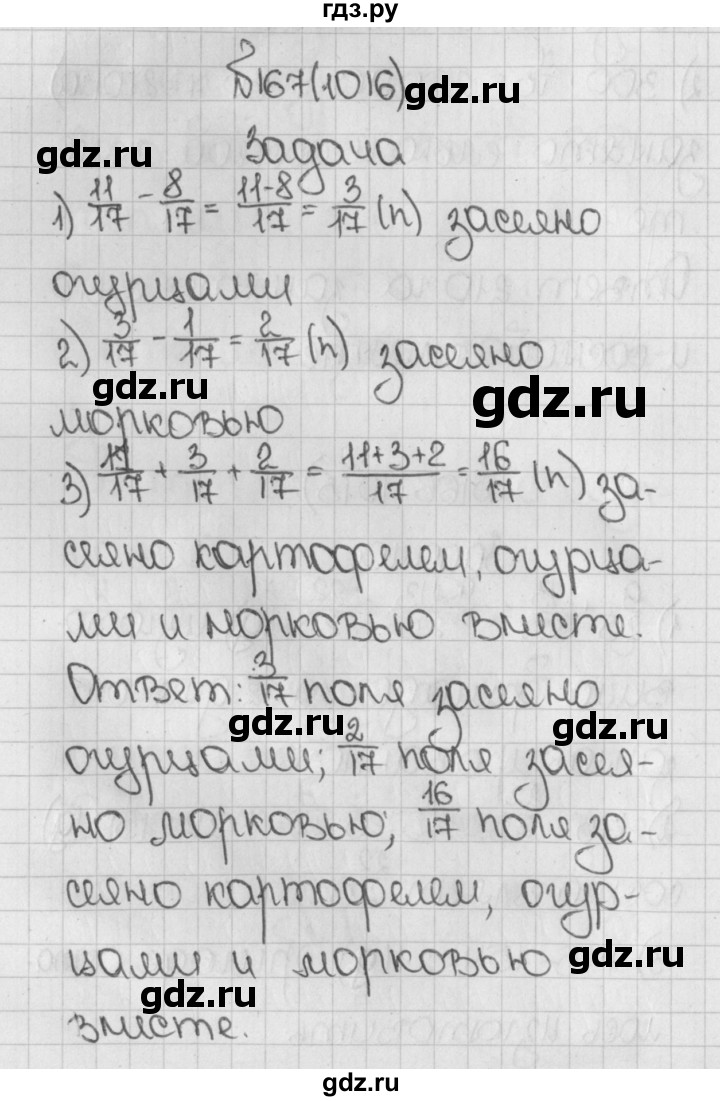 гдз.ру
№167(1016)
gdz.ru
gdz.ru
Задача
1) 11/17 - 8/17 = 11-8/17 = 3/17 (п) засеяно
огурцами
2) 3/17 - 1/17 = 2/17 (п) засеяно
gdz.ru
gdz.ru
морковью
3) 11/17 + 3/17 + 2/17 = 11+3+2/17 = 16/17 (п) за-
сеяно картофелем, огурца-
ми и морковью вместе.
Ответ: 3/17 поля засеяно
gdz.ru
gdz.ru
огурцами; 2/17 поля засея-
но морковью; 16/17 поля за-
сеяно картофелем, огур-
цами и морковью
gdz.ru
gdz.ru
вместе.
gdz.ru